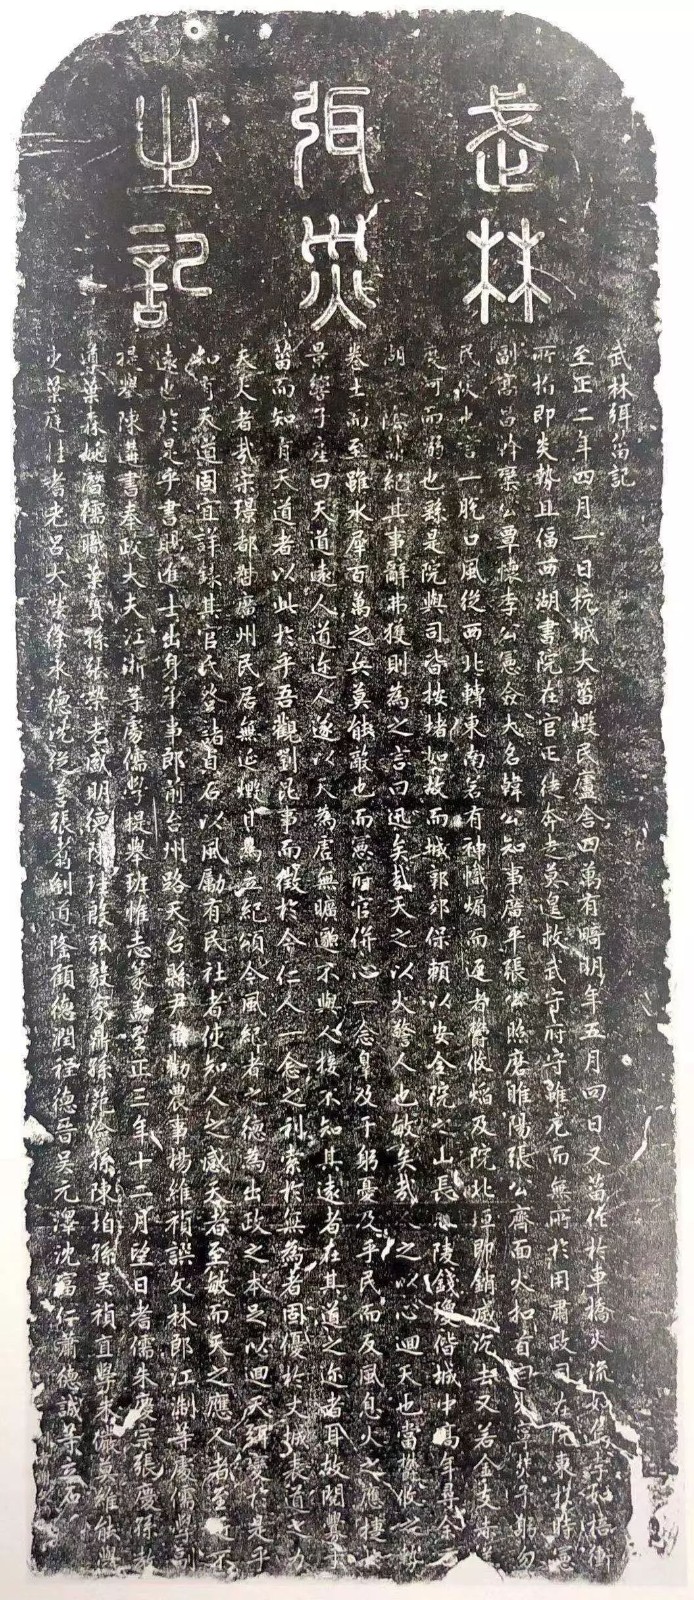 武林
弭災
之記
武林弭菑記
至正二年四月一日杭城大菑燬民廬舍四萬有畸明年五月四日又菑作於車橋火流如
所指即炎勢且偪西湖書院在官正徒奔走莫遑救武守府守雖虎而無所於用肅政司在院東
副高昌公覃懷李公憲僉大名韓公知事廣平張公照磨睢陽張公齊面火扣首曰
民伙少言一脫口風從西北轉東南若有神幟煽而返者瞥攸焰及院北垣即銷滅沉去又若金支
度可而弱也繇是院與司皆按堵如故而城郭郊保賴以安全院之山長陵錢瓊偕城中高年尋余
湖紀其事辭弗獲則為之言曰迅矣哉天之以火警人也敏矣哉人之以心迴天也當攸之
卷土而至雖水犀百萬之兵莫能敵也而憲府官併心一念辠及于躬憂及乎民而反風息火之應捷
景響子產曰天道遠人道近人遂以天為虛無曠邈不與人接不知其遠者在其道之近者耳故閱
菑而知有天道者以此於乎吾觀劉昆事而徵於今仁人一念之利素於無為者固優於火城表道之
夫人者哉宋璟都督廣州民居無延爇廿為立紀頌今風紀者之德為出政之本足以迴天弭變於是乎
知乎天道固宜詳錄其官氏登諸貞石以風勵有民社者使知人之感天者至敏而天之應人者至不
遠也於是乎書賜進士出身承事郎前台州路天台縣尹兼勸農事楊維禎譔文林郎江淛等處儒學副
提舉陳遘書奉政大夫江浙等處儒學提舉班惟志篆蓋至正三年十二月望日耆儒朱慶宗張慶孫
葉森姚潛儒職葉孫張榮老盛明德陳殷弘毅家鼎孫范孫陳垍孫吳禎直學朱莫維能學
火葉庭桂耆老呂大榮徐永德沈從善張翥創道隆顧德潤程德晉吳元澤沈富仁蕭德誠等立石